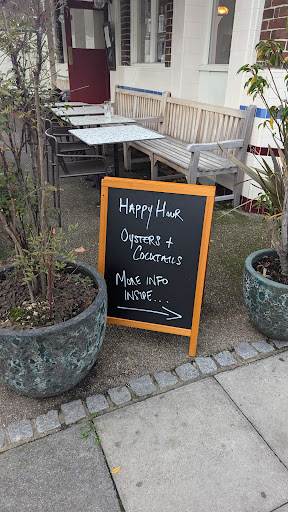 Happy Hour
Oysters +
Cocktails
More info
inside...